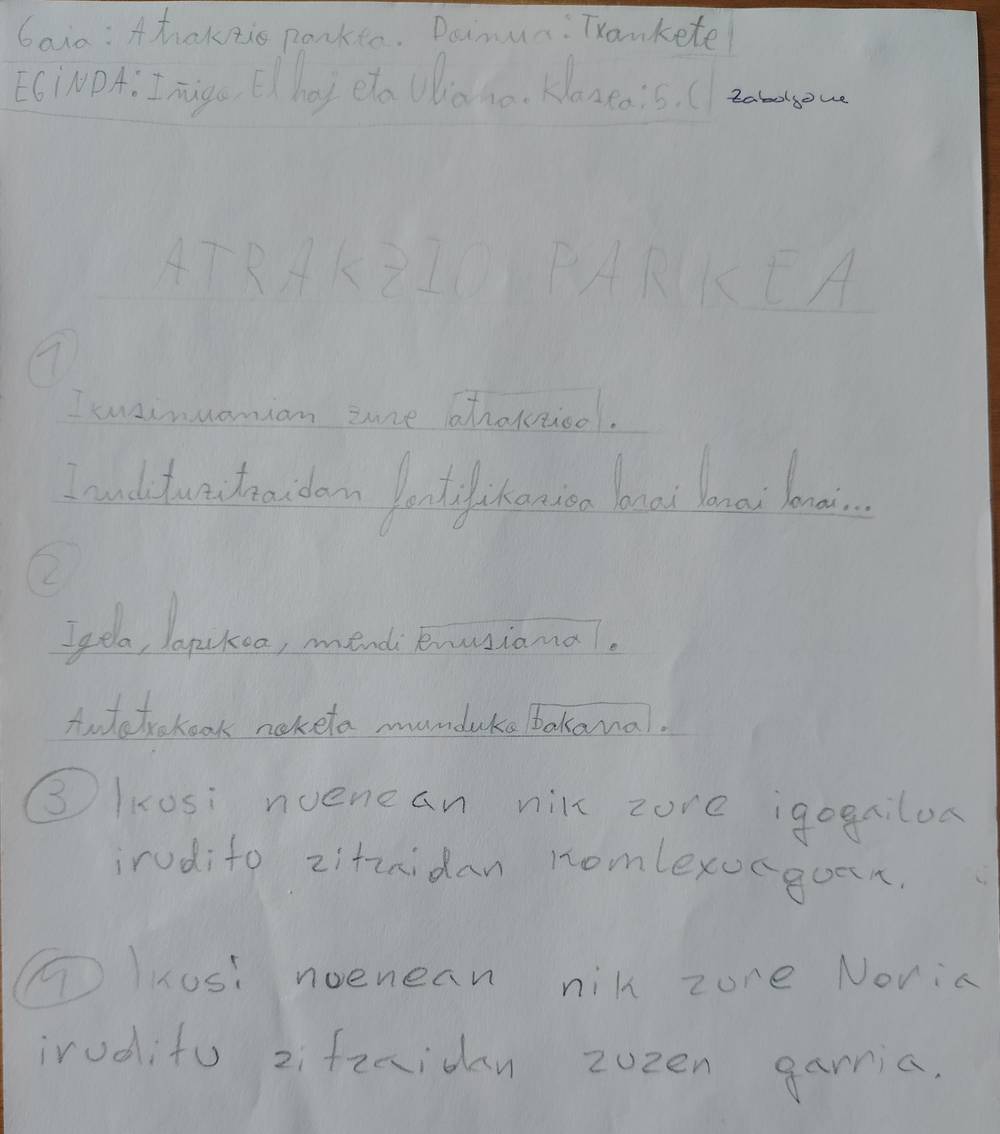 Gaia: Atrakzio parkea. Doinua: Txankete
EGINDA: Iñigo, El haj eta Uliana. Klasea: 5.C Zabalgone
ATRAKZIO PARKEA
1
Ikusinuanian zure atrakzioa.
Irudituzitzaidan fortifikazioa larai larai larai...
2
Igela, lapikoa, mendi errusiarra.
Autotxokeak roketa munduko bakarra.
3 Ikusi nuenean nik zure igogailua
irudito zitzaidan komlexuaguak.
4 Ikusi nuenean nik zure Noria
iruditu zitzaidan zuzen garria.